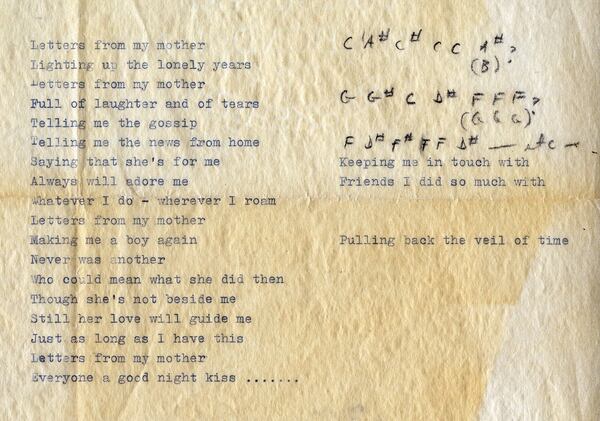 Letters from my mother
Lighting up the lonely years
Letters from my mother
Full of laughter and of tears
Telling me the gossip
Telling me the news from home
Saying that she's for me
Always will adore me
Whatever I do - wherever I roam
Letters from my mother
Making me a boy again
Never was another
Who could mean what she did then
Though she's not beside me
Still her love will guide me
Just as long as I have this
Letters from my mother
Everyone a good night kiss .......
C A# C# C C A# ?
(B)
G G# C D# F F F ?
(G G G)
F D# F# F F D# — etc —
Keeping me in touch with
Friends I did so much with
Pulling back the veil of time